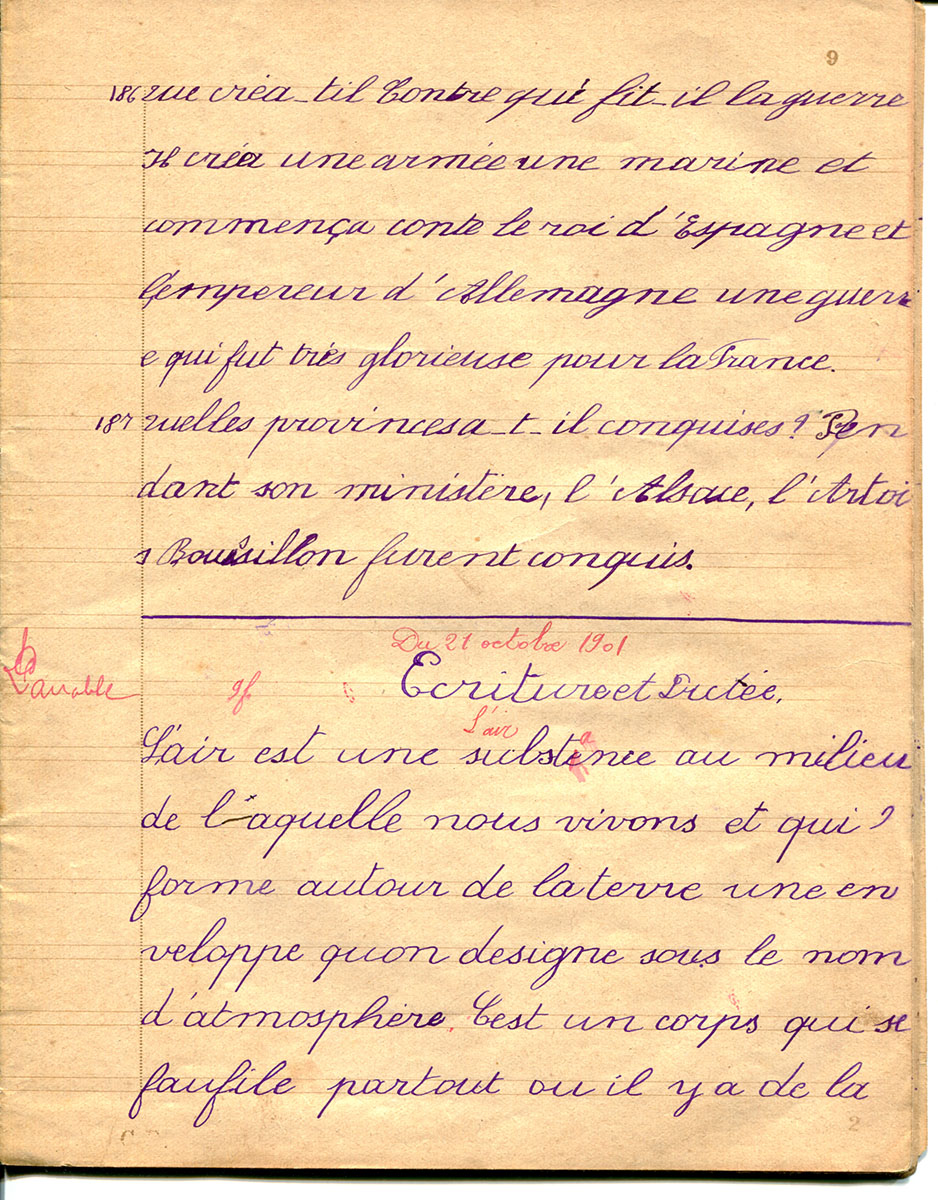 9
186 que créa_til Contre qui fit_il la guerre
Il créa une armée une marine et
commença conte le roi d'Espagne et
l'empereur d'Allemagne une guerr
e qui fut très glorieuse pour la France.
187 quelles provinces a_t_il conquises? Pen
dant son ministère, l'Alsace, l'Artoi
s Roussillon furent conquis.
Du 21 octobre 1901
Passable
Ecriture et Dictée.
L'air
L'air est une substance au milieu
de l'aquelle nous vivons et qui
forme autour de la terre une en
veloppe quon designe sous le nom
d'atmosphère. C'est un corps qui se
faufile partout ou il y a de la
2